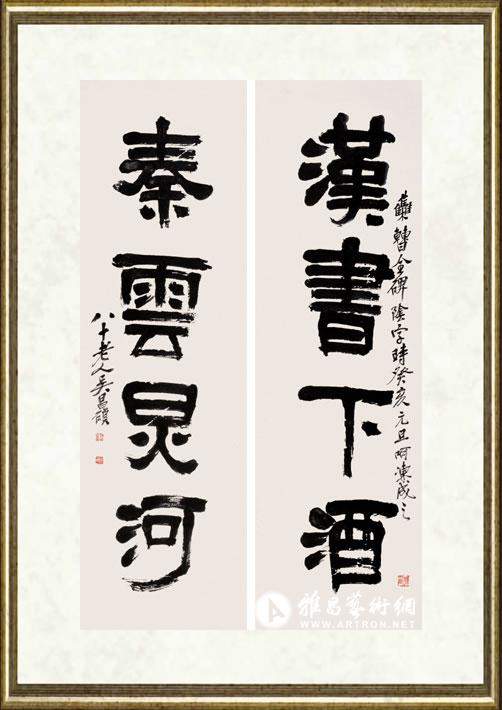 漢書下酒
雧曹全碑陰字時癸亥元旦呵凍成之
秦雲炅河
八十老人吳昌碩
雅昌藝術網
WWW.ARTRON.NET